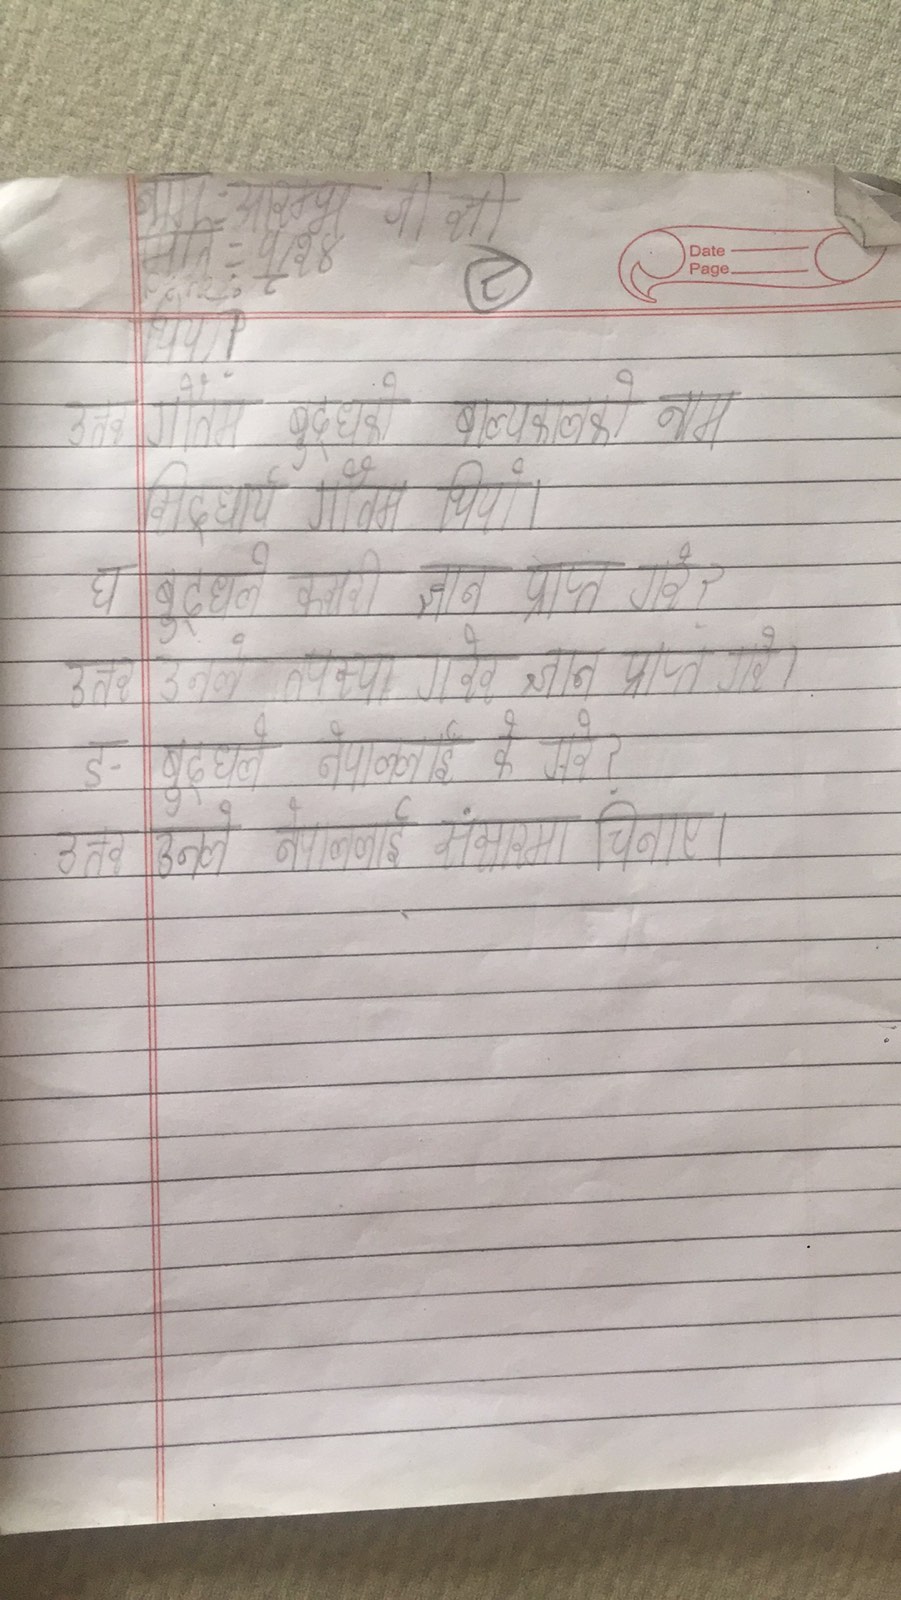 नाम:- आरम्भ जी सी
मिति:- ५/२४
२
Date
Page
थियो?
उत्तर गौतम बुद्धको बाल्यकालको नाम
सिद्धार्थ गौतम थियो।
घ बुद्धले कसरी ज्ञान प्राप्त गरे?
उत्तर उनले तपस्या गरेर ज्ञान प्राप्त गरे।
ङ- बुद्धले नेपाललाई के गरे?
उत्तर उनले नेपाललाई संसारमा चिनाए।